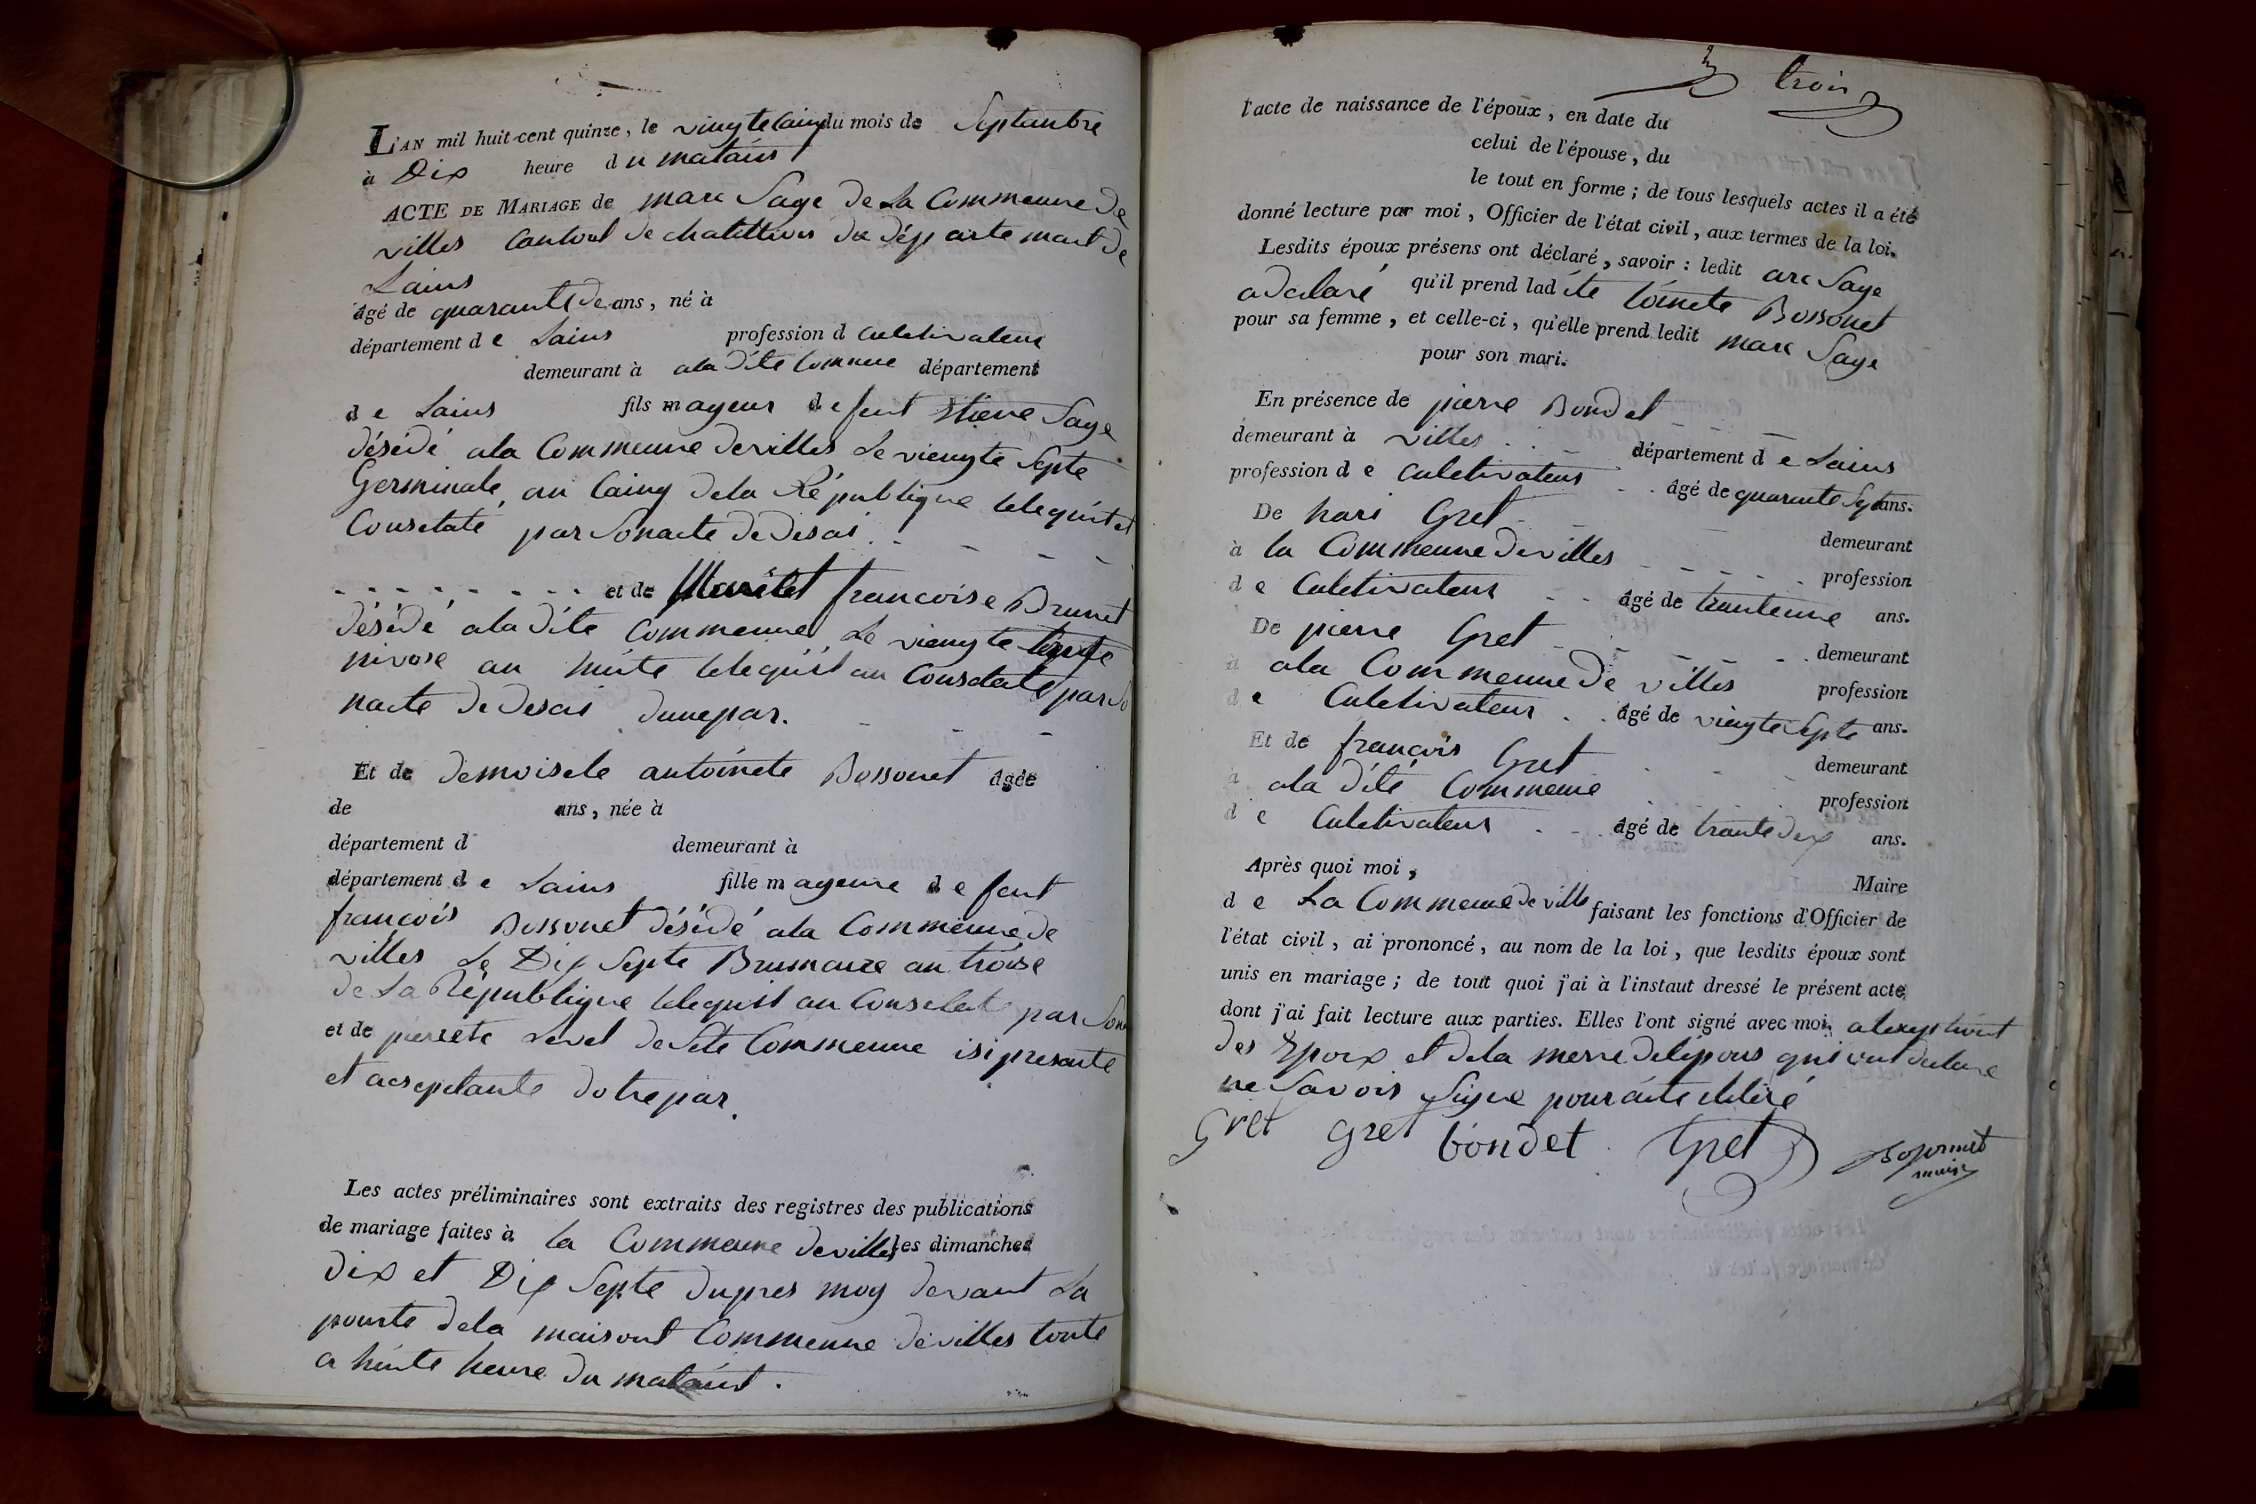 L'AN mil huit-cent quinze, le vingte Cainq du mois de Septanbre
à Dix heure du matains
ACTE DE MARIAGE de marc Sage de La Commeune de
villes Cantont de chatillions du département de
Lains
âgé de quarante de ans, né à
département de Lains profession d Culetivateur
demeurant à ala dite Commune département
de Lains fils mayeur de feut Etiene Sage
désédé ala Commeune devilles Le viengte Septe
Germinale an Cainq dela République telequit et
Consetaté par Sonacte de desai
et de francoise Brunet
désédé ala dite Commeune Le viengte
nivose an huite telequit au Consetate par So
nacte de desai dunepar.
Et de demoisele antoinete Bossonet âgée
de ans, née à
département d demeurant à
département de Lains fille mayeure de feut
françois Bossonet désédé ala Commeune de
villes Le Dix Septe Brumaire an troise
de La République telequit au Consetate par Son
et de pierrete Level desete Commeune isi presante
et acseptante dotrepar.
Les actes préliminaires sont extraits des registres des publications
de mariage faites à la Commeune devilles les dimanches
dix et Dix Septe dupres moy devant La
pourte dela maisont Commeune devilles toute
a huite heure du mataint.
trois
l'acte de naissance de l'époux, en date du
celui de l'épouse, du
le tout en forme; de tous lesquels actes il a été
donné lecture par moi, Officier de l'état civil, aux termes de la loi.
Lesdits époux présens ont déclaré, savoir: ledit arc Sage
adeclaré qu'il prend ladite toinete Bossonet
pour sa femme, et celle-ci, qu'elle prend ledit marc Sage
pour son mari.
En présence de pierre Bondet
demeurant à villes département de Lains
profession de Culetivateur âgé de quarante Sept ans.
De hari Gret demeurant
à la Commeune devilles profession
de Culetivateur âgé de tranteune ans.
De pierre Gret demeurant
à ala Commeune de villes profession
de Culetivateur âgé de viengte Septe ans.
Et de françois Gret demeurant
à ala dite Commeune profession
de Culetivateur âgé de trante deux ans.
Après quoi moi, Maire
de La Commeune de ville faisant les fonctions d'Officier de
l'état civil, ai prononcé, au nom de la loi, que lesdits époux sont
unis en mariage; de tout quoi j'ai à l'instaut dressé le présent acte,
dont j'ai fait lecture aux parties. Elles l'ont signé avec moi,
des Epoux et dela merre delépous qui ont declare
ne Savoir Signe
Gret Gret bondet Gret Bossonnet
maire